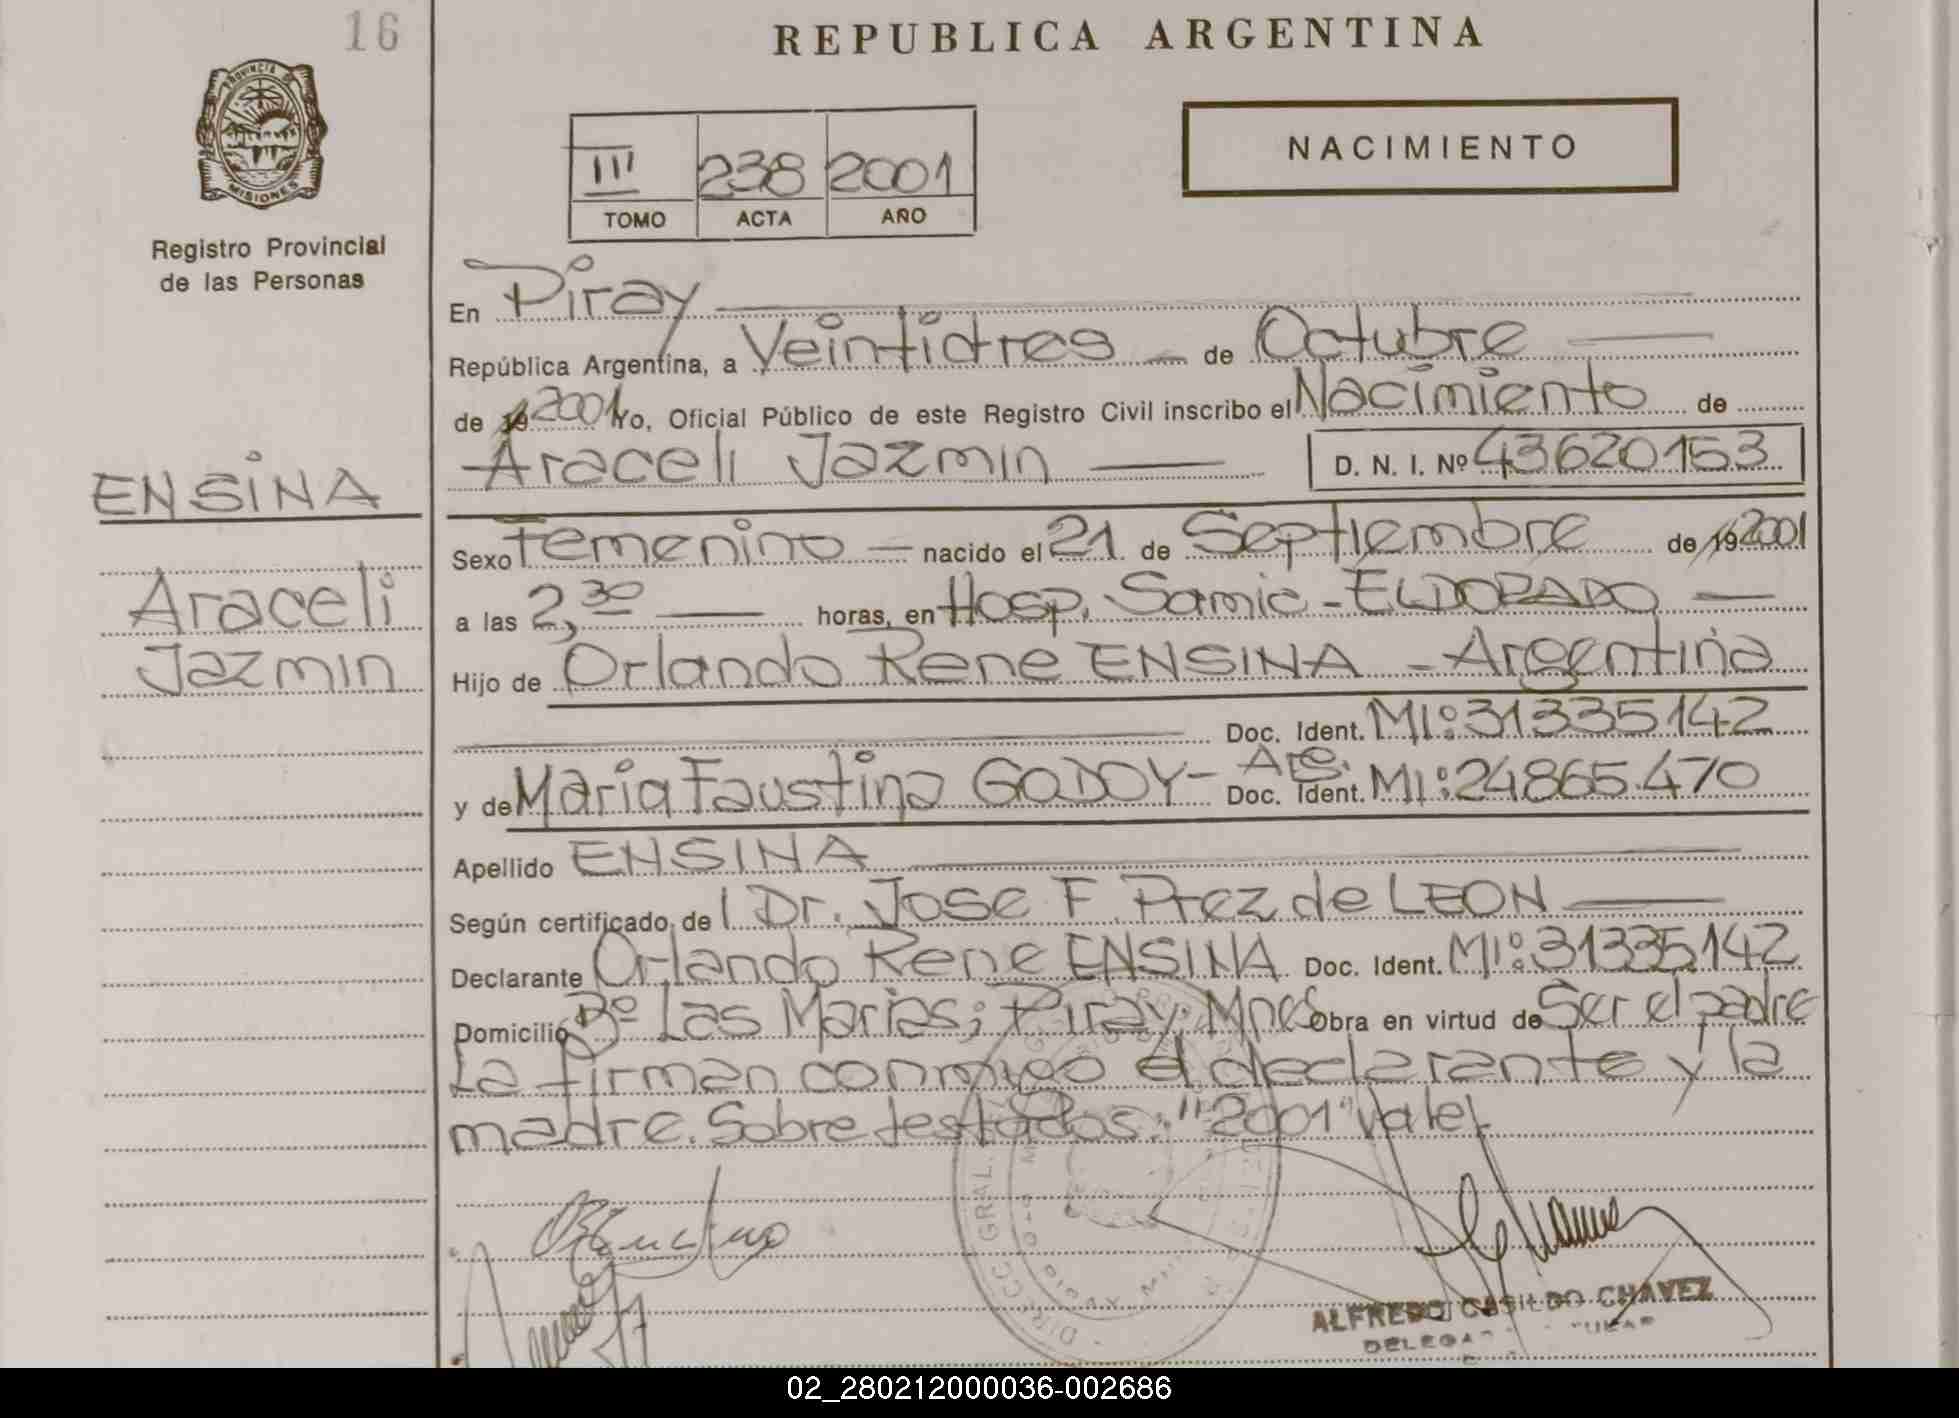 16
REPUBLICA ARGENTINA
PROVINCIA DE
MISIONES
Registro Provincial
de las Personas
NACIMIENTO
III 238 2001
TOMO ACTA AÑO
En Piray
República Argentina, a Veintidres de Octubre
de 19 2001 Yo, Oficial Público de este Registro Civil inscribo el Nacimiento de
Araceli Jazmin D. N. I. Nº 43620153
ENSINA
Araceli
Jazmin
Sexo Femenino nacido el 21 de Septiembre de 19 2001
a las 2,30 horas, en Hosp. Samic - ELDORADO
Hijo de Orlando Rene ENSINA - Argentina
Doc. Ident. MI: 31335142
y de Maria Faustina GODOY - Arg. Doc. Ident. MI: 24865.470
Apellido ENSINA
Según certificado de l Dr. Jose F. Prez de LEON
Declarante Orlando Rene ENSINA Doc. Ident. MI: 31335.142
Domicilio Bº Las Marias; Piray. Mnes Obra en virtud de Ser el padre
La firman conmigo el declarante y la
madre. Sobre testados: "2001" Vale
DIRECC GRAL.
ALFREDO CASILDO CHAVEZ
02_280212000036-002686